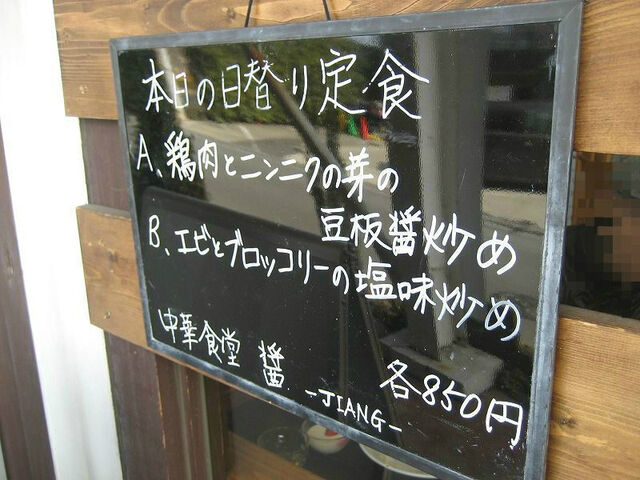 本日の日替り定食
A、鶏肉とニンニクの芽の
豆板醤炒め
B、エビとブロッコリーの塩味炒め
中華食堂 醤
-JIANG-
各850円